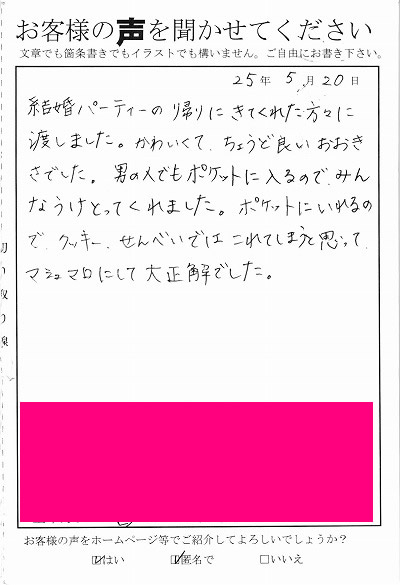 お客様の声を聞かせてください
文章でも箇条書きでもイラストでも構いません。ご自由にお書き下さい。
25年 5月 20日
結婚パーティーの帰りにきてくれた方々に
渡しました。かわいくて、ちょうど良いおおき
さでした。男の人でもポケットに入るので、みん
なうけとってくれました。ポケットにいれるの
で、クッキー、せんべいではこれてしまうと思って、
マシュマロにして大正解でした。
お客様の声をホームページ等でご紹介してよろしいでしょうか？
☑はい ☑匿名で □いいえ